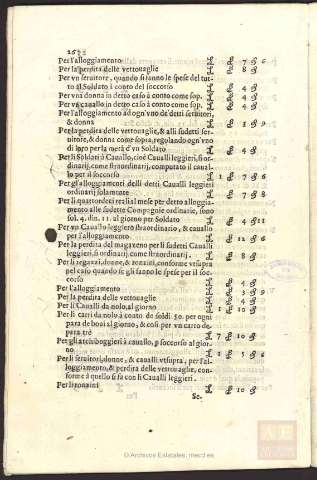 Per l'alloggiamento ₤ 7 6
Per la perdita delle vettouaglie ₤ 8
Per vn seruitore, quando si fanno le spese del tut-
to al Soldato à conto del soccorso ₤ 4
Per vna donna in detto caso à conto come sop. ₤ 4
Per vn cauallo in detto caso à conto come sop. ₤ 4
Per l'alloggiamento ad ogn'vno de' detti seruitor,
& donna ₤ 1 9
Per la perdita delle vettouaglie, & alli sudetti ser-
uitore, & donna come sopra, regolando ogn'vno
di loro per la metà d'vn Soldato ₤ 4
Per li Soldati à Cauallo, cioè Caualli leggieri, ordinarij,
come straordinarij, computato il caual-
lo per il soccorso ₤ 1 7 6
Per gl'alloggiamenti delli detti Caualli leggieri
ordinarij solamente ₤ 7 8
Per li quattordeci reali al mese per detto alloggia-
mento alle sudette Compagnie ordinarie, sono
sol. 4. din. 11. al giorno per Soldato ₤ 4 11
Per vn Cauallo leggiero straordinario, & cauallo
per l'alloggiamento ₤ 12 6
Per la perdita del magazeno per li sudetti Caualli
leggieri, sì ordinarij come straordinarij ₤ 8
Per li ragazzi, donne, & ronzini, conforme vt supra
nel caso quando se gli fanno le spese per il soc-
corso ₤ 4
Per l'alloggiamento ₤ 3 9
Per la perdita delle vettouaglie ₤ 4
Per li Caualli da nolo, al giorno ₤ 1 10
Per li carri da nolo à conto de soldi 50. per ogni
para de boui al giorno, & così per vn carro de
para trè ₤ 7 10
Per gli archibuggieri à cauallo, p soccorso al gior-
no ₤ 1 7 6
Per li seruitori, donne, & caualli vt supra, per l'al-
loggiamento, & perdita delle vettouaglie, con-
forme à quello si fa con li Caualli leggieri.
Per li ronzini ₤ 10
Se.
© Archivos Estatales, mecd.es